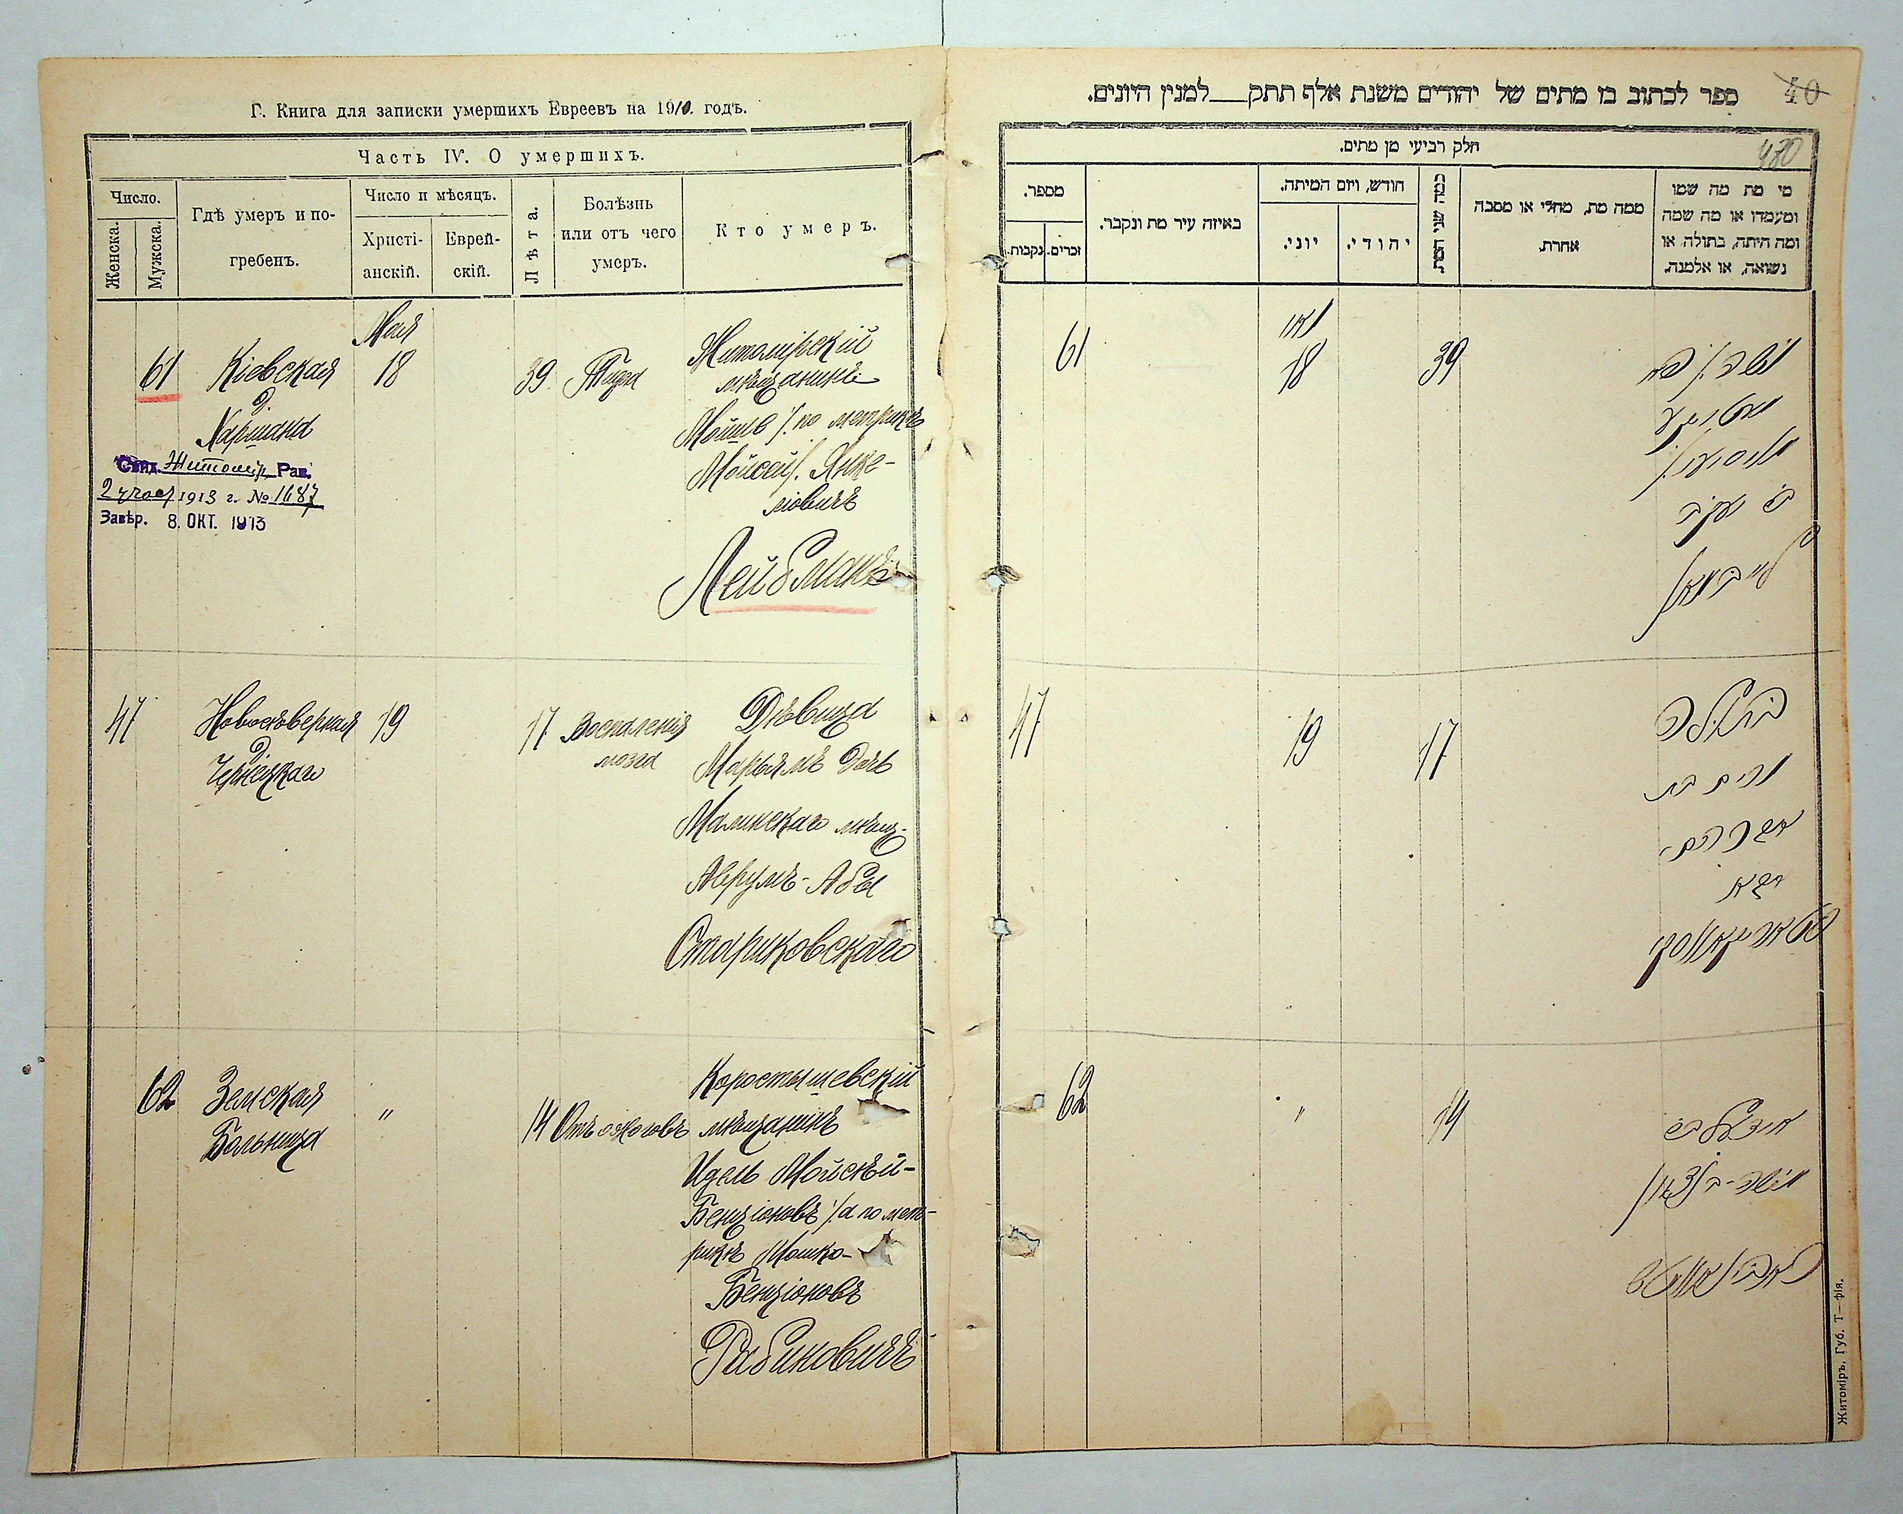 Г. Книга для записки умершихъ Евреевъ на 1910. годъ.
Часть IV. О умершихъ.
Число.
Женска.
Мужска.
Гдѣ умеръ и по-
гребенъ.
Число и мѣсяцъ.
Христі-
анскій.
Еврей-
скій.
Лѣта.
Болѣзнь
или отъ чего
умеръ.
Кто умеръ.
61
Кіевская
д.
Мая
18
39
Житомірскій
мѣщанинъ
Мойше /. по метрикѣ
Мойсей/. Янке-
ліовичъ
Лейбманъ
Свид. Житомір. Рав.
1913 г. № 1687
Завѣр. 8. ОКТ. 1913
47
Новосѣверная
д.
Чернецкаго
19
17
Воспаленія
мозга
Дѣвица
Марьямъ дочь
мѣщ.
Аврумъ-Абы
Стариковскаго
62
Земская
Больница
"
14
Отъ ожоговъ
Коростышевскій
мѣщанинъ
Идель Мойсѣй-
Бенціоновъ /. а по мет-
рикѣ Мошко-
Бенціоновъ
Рабиновичъ
40
480
ספר לכתוב בו מתים של יהודים משנת אלף תתק__למנין היונים.
חלק רביעי מן מתים.
מי מת מה שמו
ומעמדו או מה שמה
ומה היתה, בתולה או
נשואה, או אלמנה.
ממה מת, מחלי או מסבה
אחרת.
חודש, ויום המיתה.
יהודי.
יוני.
באיזה עיר מת ונקבר.
מספר.
זכרים.
נקבות.
61
מאי
18
39
משה /. פה
בּ יעקב
לייבמאן
47
19
17
בתולה
מרים בת
אברהם
אבא
סטאריקאווסקי
62
"
14
אידעל בּ
משה-בןציון
ראבינאוויטש
Житоміръ, Губ. Т—фія.